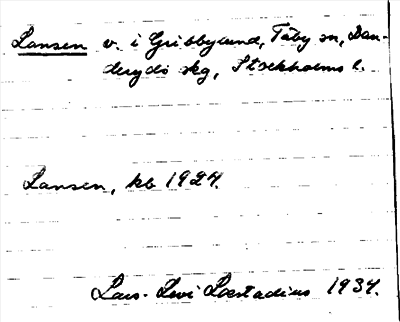 Lansen v. i Gribbylund, Täby sn, Dan-
deryds skg, Stockholms l.
Lansen, kb 1927.
Lars-Levi Læstadius 1937.